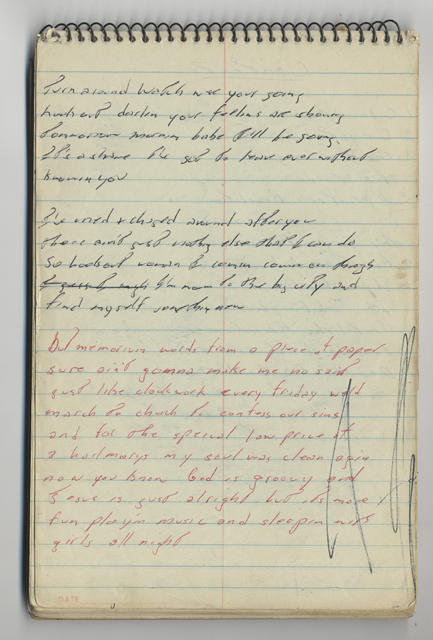 Turn around Watch use your going
lookout darlin your feelins are showing
Tommorrow mornin babe I'll be going
It's a shame I've got to leave ever without
knowin you
I've cried & chased around after you
there ain't just nothing else that I can do
So lookout woman I comin comin on through
I'm movin to the big city and
find myself something new
But memorizin words from a piece of paper
sure ain't gonna make me no saint
just like clockwork every friday we'd
march to church to confess our sins
and for the special low price of
a hailmarys my soul was clean again
now you know God is groovy and
Jesus is just alright but its more
fun playin music and sleepin with
girls all night
DATE